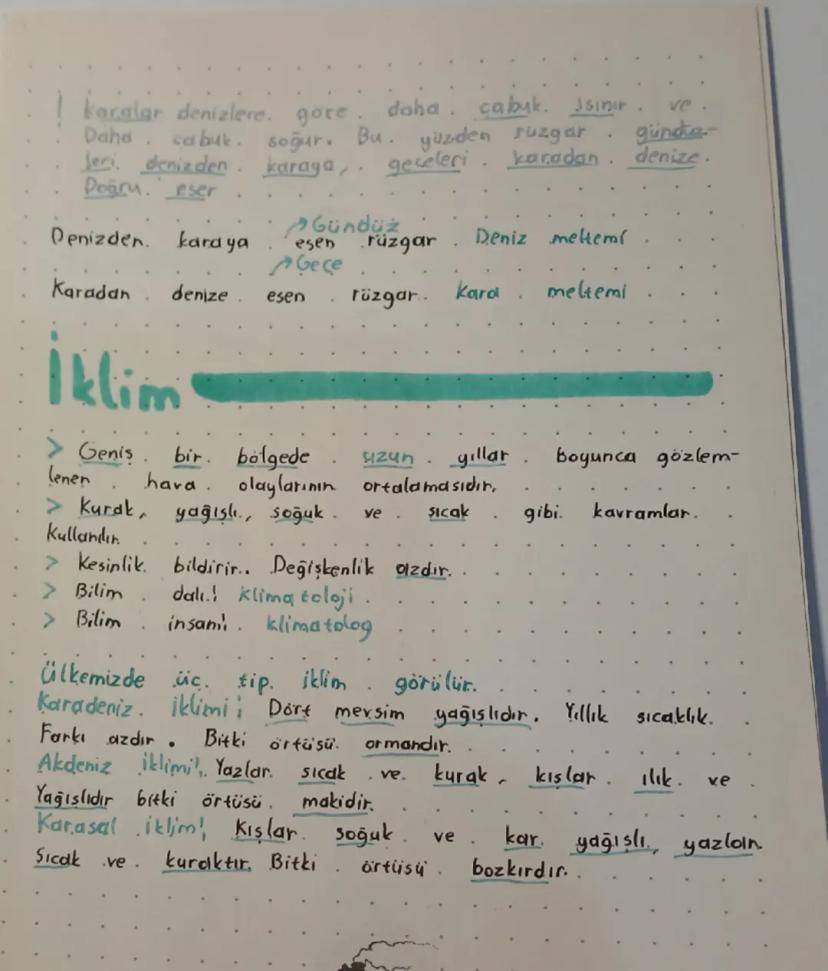 ! Karalar denizlere göre daha çabuk ısınır ve
Daha çabuk soğur. Bu yüzden rüzgar gündüz-
leri denizden karaya, geceleri karadan denize.
Doğru eser
Gündüz
Denizden karaya esen rüzgar Deniz meltemi
Gece
Karadan denize esen rüzgar. Kara meltemi
İklim
> Geniş bir bölgede uzun yıllar boyunca gözlem-
lenen hava olaylarının ortalamasıdır.
> Kurak, yağışlı, soğuk ve sıcak gibi kavramlar
Kullanılır.
> Kesinlik bildirir. Değişkenlik azdır.
> Bilim dalı: Klimatoloji
> Bilim insanı: klimatolog
Ülkemizde üç tip iklim görülür.
Karadeniz iklimi: Dört mevsim yağışlıdır. Yıllık sıcaklık
Farkı azdır. Bitki örtüsü ormandır.
Akdeniz İklimi: Yazlar sıcak ve kurak, kışlar ılık ve
Yağışlıdır bitki örtüsü makidir.
Karasal iklim: Kışlar soğuk ve kar yağışlı, yazları
Sıcak ve kuraktır. Bitki örtüsü bozkırdır.